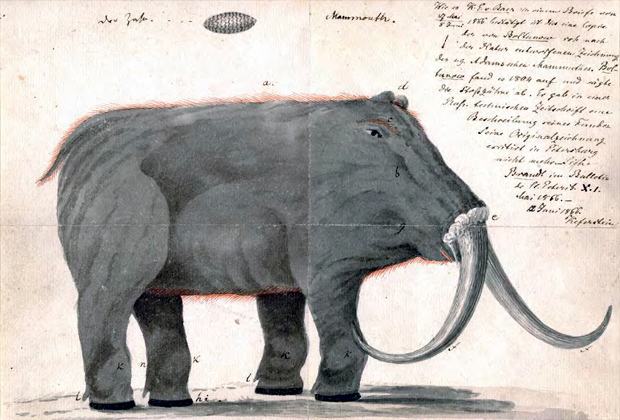 Mammouth.
Der Zahn.
in einem Briefe von
Juni 1866 bestätigt ist dies eine Copie
der von Boltunow roh nach
der Natur entworfenen Zeichnung
des sg. Adamschen Mammuthes. Bol-
tunow fand es 1804 auf und
die Stoßzähne ab. Er gab in einer
technischen Zeitschrift eine
Beschreibung seines Fundes
Seine Originalzeichnung
existirt in Petersburg
nicht mehr. Siehe
Brandt im Bulletin
X. 1.
Mai 1866. —
12 Juni 1866.
Keferstein
a.
d
c
b
g
e
f
k n k
k k
l h i .
l